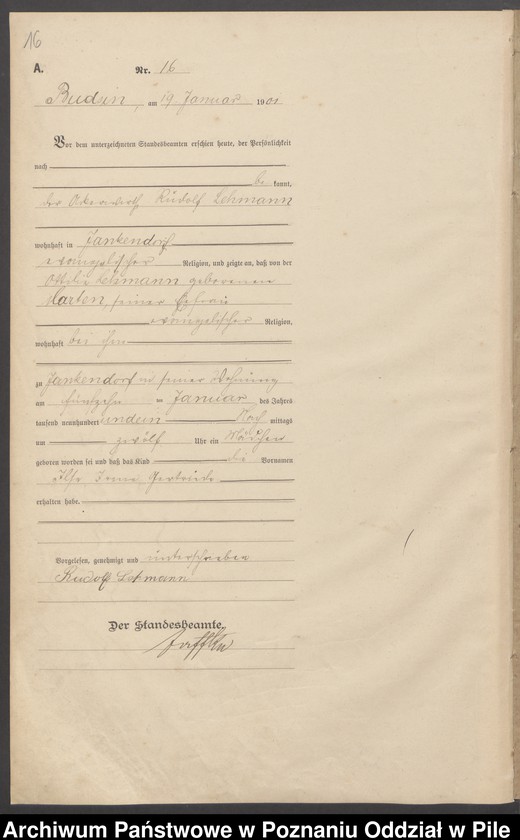 16
A. Nr. 16
Budsin, am 19. Januar 1901
Vor dem unterzeichneten Standesbeamten erschien heute, der Persönlichkeit
nach
be kannt,
der Ackerwirth Rudolf Lehmann
wohnhaft in Jankendorf
evangelischer Religion, und zeigte an, daß von der
Ottilie Lehmann geborenen
Marten, seiner Ehefrau
evangelischer Religion,
wohnhaft bei ihm
zu Jankendorf in seiner Wohnung
am fünfzehn ten Januar des Jahres
tausend neunhundert und ein Nach mittags
um zwölf Uhr ein Mädchen
geboren worden sei und daß das Kind die Vornamen
Ilse Gertrude
erhalten habe.
Vorgelesen, genehmigt und unterschrieben
Rudolf Lehmann
Der Standesbeamte.
Archiwum Państwowe w Poznaniu Oddział w Pile